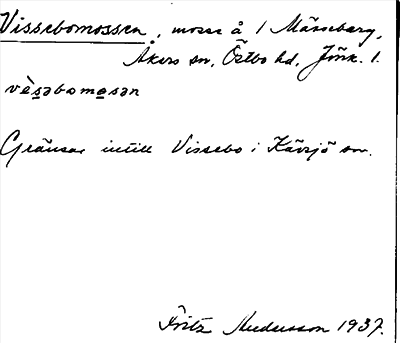 Vissebomossen, mosse å 1 Mårseberg,
Åkers sn, Östbo hd, Jönk. l.
vèsəbomosən
Gränsar intill Vissebo i Kävsjö sn.
Fritz Andersson 1937.